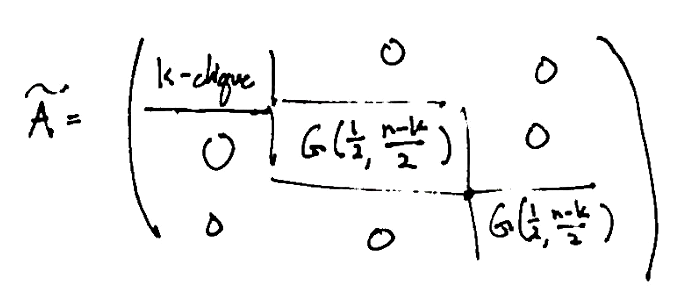 k-clique 0 0
Ã = 0 G(1/2, n-k/2) 0
0 0 G(1/2, n-k/2)